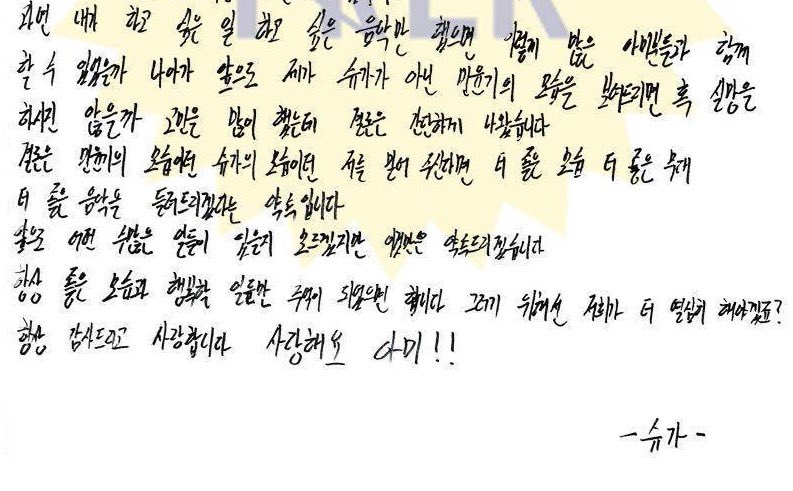 과연 내가 하고 싶은 일 하고 싶은 음악만 했으면 이렇게 많은 아미분들과 함께
할 수 있었을까 나아가 앞으로 제가 슈가가 아닌 민윤기의 모습을 보여드리면 혹 실망을
하시진 않을까 고민을 많이 했는데 결론은 간단하게 나왔습니다
결론은 민윤기의 모습이던 슈가의 모습이던 저를 믿어 주신다면 더 좋은 모습 더 좋은 무대
더 좋은 음악을 들려드리겠다는 약속입니다
앞으로 어떤 수많은 일들이 있을지 모르겠지만 이것만은 약속드리겠습니다
항상 좋은 모습과 행복할 일들만 추억이 되었으면 합니다 그러기 위해선 저희가 더 열심히 해야겠죠?
항상 감사드리고 사랑합니다 사랑해요 아미!!
-슈가-